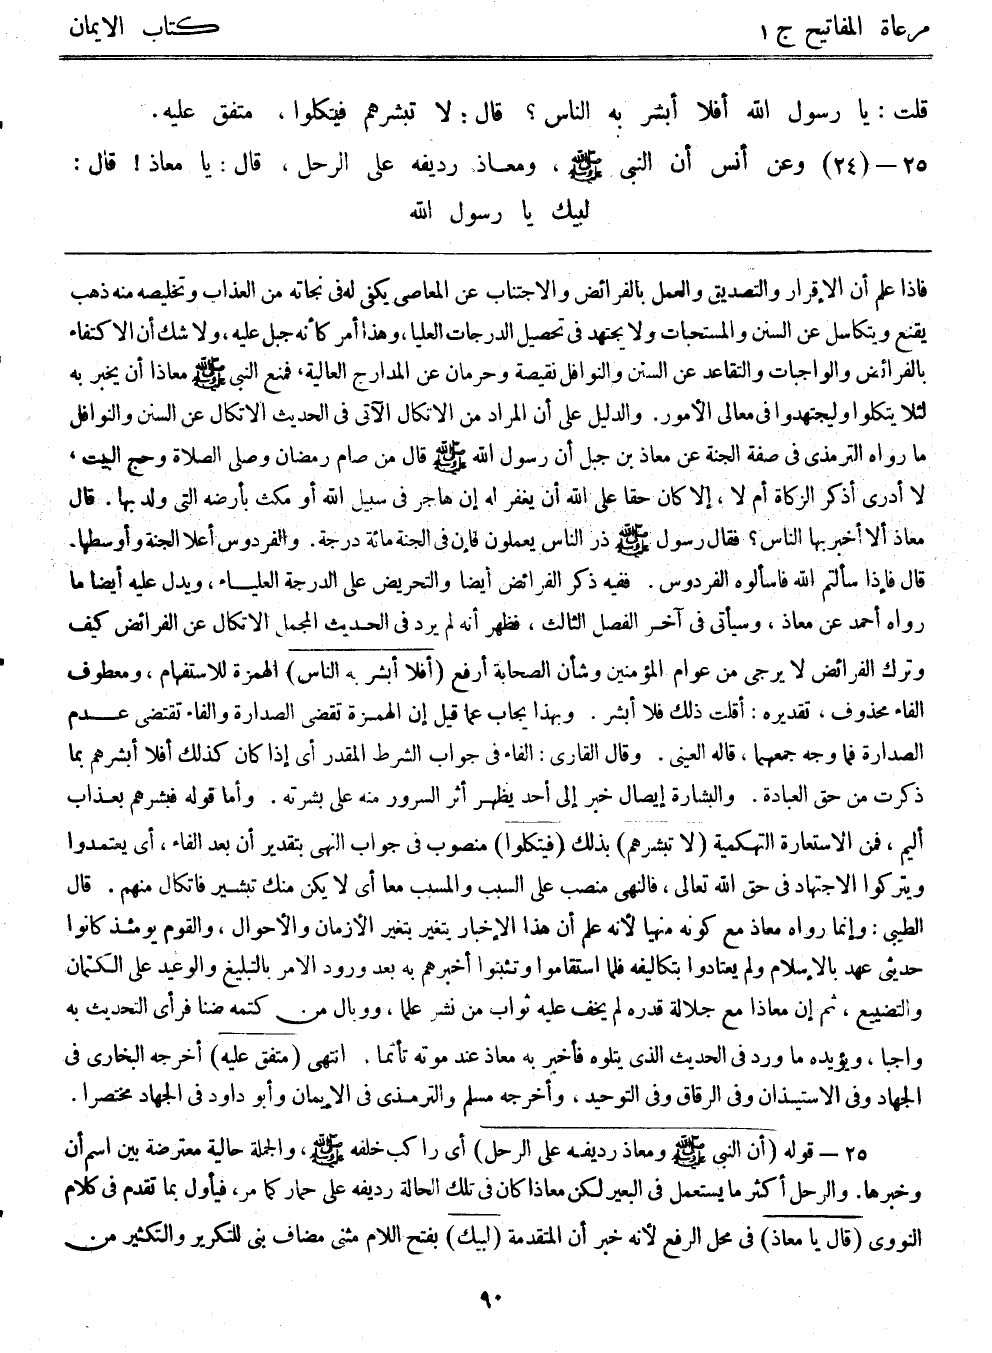 مرعاة المفاتيح ج ١
كتاب الايمان
قلت : يا رسول الله أفلا أبشر به الناس ؟ قال : لا تبشرهم فيتكلوا ، متفق عليه .
٢٥ – (٢٤) وعن أنس أن النبى ﷺ ، ومعاذ رديفه على الرحل ، قال : يا معاذ ! قال :
لبيك يا رسول الله
فاذا علم أن الإقرار والتصديق والعمل بالفرائض والاجتناب عن المعاصى يكفى له فى نجاته من العذاب وتخليصه منه ذهب
يقنع ويتكاسل عن السنن والمستحبات ولا يجتهد فى تحصيل الدرجات العليا، وهذا أمر كأنه جبل عليه ، ولا شك أن الاكتفاء
بالفرائض والواجبات والتقاعد عن السنن والنوافل نقيصة وحرمان عن المدارج العالية، فمنع النبى ﷺ معاذا أن يخبر به
لئلا يتكلوا وليجتهدوا فى معالى الأمور. والدليل على أن المراد من الاتكال الآتى فى الحديث الاتكال عن السنن والنوافل
ما رواه الترمذى فى صفة الجنة عن معاذ بن جبل أن رسول الله ﷺ قال من صام رمضان وصلى الصلاة وحج البيت ،
لا أدرى أذكر الزكاة أم لا ، إلا كان حقا على الله أن يغفر له إن هاجر فى سبيل الله أو مكث بأرضه التى ولد بها . قال
معاذ ألا أخبر بها الناس؟ فقال رسول ﷺ ذر الناس يعملون فإن فى الجنة مائة درجة. والفردوس أعلا الجنة وأوسطها.
قال فإذا سألتم الله فاسألوه الفردوس . ففيه ذكر الفرائض أيضا والتحريض على الدرجة العليـاء ، ويدل عليه أيضا ما
رواه أحمد عن معاذ ، وسيأتى فى آخر الفصل الثالث ، فظهر أنه لم يرد فى الحديث المجمل الاتكال عن الفرائض كيف
وترك الفرائض لا يرجى من عوام المؤمنين وشأن الصحابة أرفع (أفلا أبشر به الناس) الهمزة للاستفهام ، ومعطوف
الفاء محذوف ، تقديره : أقلت ذلك فلا أبشر . وبهذا يجاب عما قيل إن الهمزة تقضى الصدارة والفاء تقتضى عـدم
الصدارة فما وجه جمعهما ، قاله العينى . وقال القارى : الفاء فى جواب الشرط المقدر أى إذا كان كذلك أفلا أبشرهم بما
ذكرت من حق العبادة . والبشارة إيصال خبر إلى أحد يظهر أثر السرور منه على بشرته . وأما قوله فبشرهم بعذاب
أليم ، فمن الاستعارة التهكمية (لا تبشرهم) بذلك (فيتكلوا) منصوب فى جواب النهى بتقدير أن بعد الفاء ، أى يعتمدوا
ويتركوا الاجتهاد فى حق الله تعالى ، فالنهى منصب على السبب والمسبب معا أى لا يكن منك تبشير فاتكال منهم . قال
الطيبى : وإنما رواه معاذ مع كونه منهيا لأنه علم أن هذا الإخبار يتغير بتغير الأزمان والأحوال ، والقوم يومئذ كانوا
حديثى عهد بالإسلام ولم يعتادوا بتكاليفه فلما استقاموا وتثبتوا أخبرهم به بعد ورود الامر بالتبليغ والوعيد على الكتمان
والتضييع ، ثم إن معاذا مع جلالة قدره لم يخف عليه ثواب من نشر علما ، ووبال من كتمه ضنا فرأى التحديث به
واجبا ، ويؤيده ما ورد فى الحديث الذى يتلوه فأخبر به معاذ عند موته تأثما . انتهى (متفق عليه) أخرجه البخارى فى
الجهاد وفى الاستيذان وفى الرقاق وفى التوحيد ، وأخرجه مسلم والترمذى فى الإيمان وأبو داود فى الجهاد مختصرا .
٢٥ – قوله (أن النبى ﷺ ومعاذ رديفه على الرحل) أى راكب خلفه ﷺ، والجملة حالية معترضة بين اسم أن
وخبرها. والرحل أكثر ما يستعمل فى البعير لكن معاذا كان فى تلك الحالة رديفه على حمار كما مر، فيأول بما تقدم فى كلام
النووى (قال يا معاذ) فى محل الرفع لأنه خبر أن المتقدمة (لبيك) بفتح اللام مثنى مضاف بنى للتكرير والتكثير من
٩٠